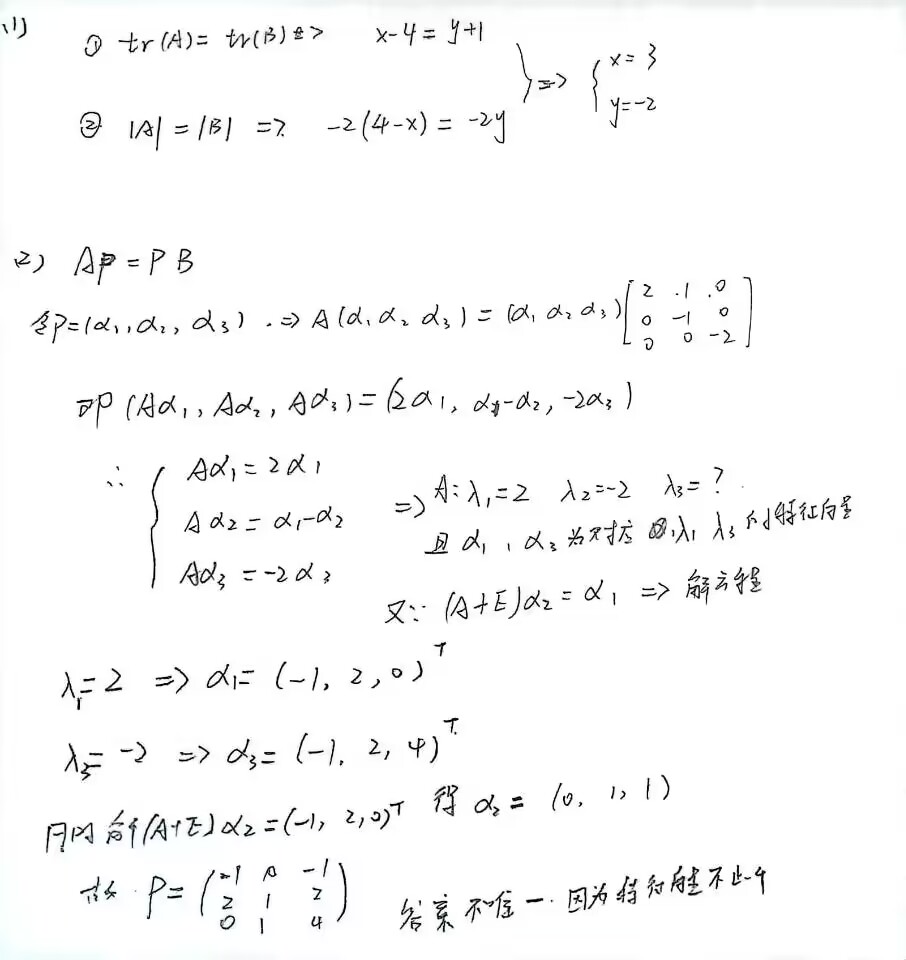 (1) ① tr(A)=tr(B) => x-4=y+1
② |A|=|B| => -2(4-x)=-2y } => { x=3 y=-2
(2) AP=PB
令P=(α₁,α₂,α₃).=> A(α₁ α₂ α₃)=(α₁ α₂ α₃)[2 1 0
0 -1 0
0 0 -2]
即(Aα₁,Aα₂,Aα₃)=(2α₁,α₁-α₂,-2α₃)
∴ { Aα₁=2α₁
Aα₂=α₁-α₂
Aα₃=-2α₃
=> A:λ₁=2 λ₂=-2 λ₃=?
且α₁,α₃为对应λ₁ λ₃的特征向量
又∵(A+E)α₂=α₁ => 解方程
λ₁=2 => α₁=(-1,2,0)ᵀ
λ₃=-2 => α₃=(-1,2,4)ᵀ
解(A+E)α₂=(-1,2,0)ᵀ 得 α₂=(0,1,1)
故 P=(-1 0 -1
2 1 2
0 1 4)
答案不唯一.因为特征向量不止一个